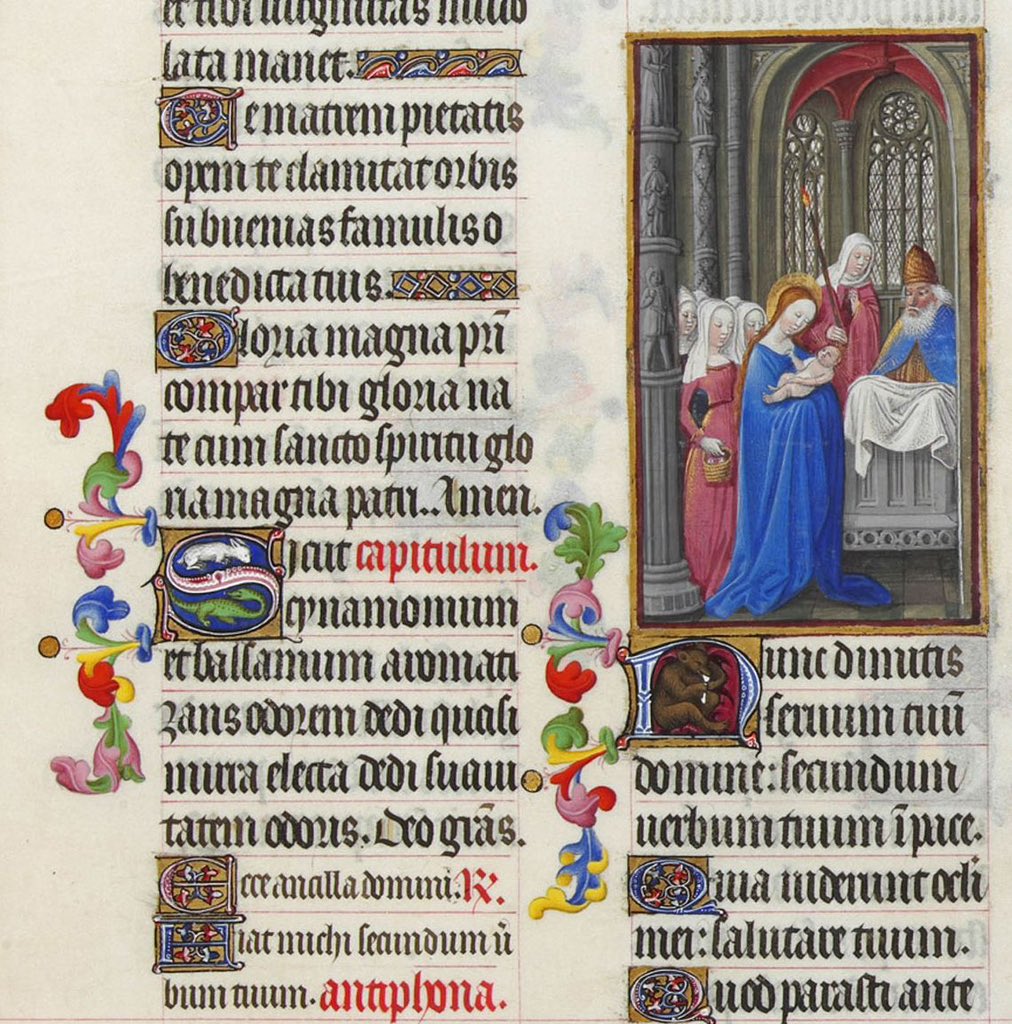 et tibi virginitas inuio
lata manet.
Te matrem pietatis
opem te clamitat orbis
subuenias famulis o
benedicta tuis.
Gloria magna pr̄i
compar tibi gloria na
te cum sancto spiritu glo
ria magna patri. Amen.
Sicut capitulum.
cynamomum
et balsamum aromati
zans odorem dedi quasi
mirra electa dedi suaui
tatem odoris. Deo gr̄as.
Ecce ancilla domini. R⁊.
Fiat michi secundum ū
bum tuum. antiphona.
Nunc dimitis
seruum tuū
domine: secundum
uerbum tuum ī pace.
Quia uiderunt ocli
mei: salutare tuum.
Quod parasti ante